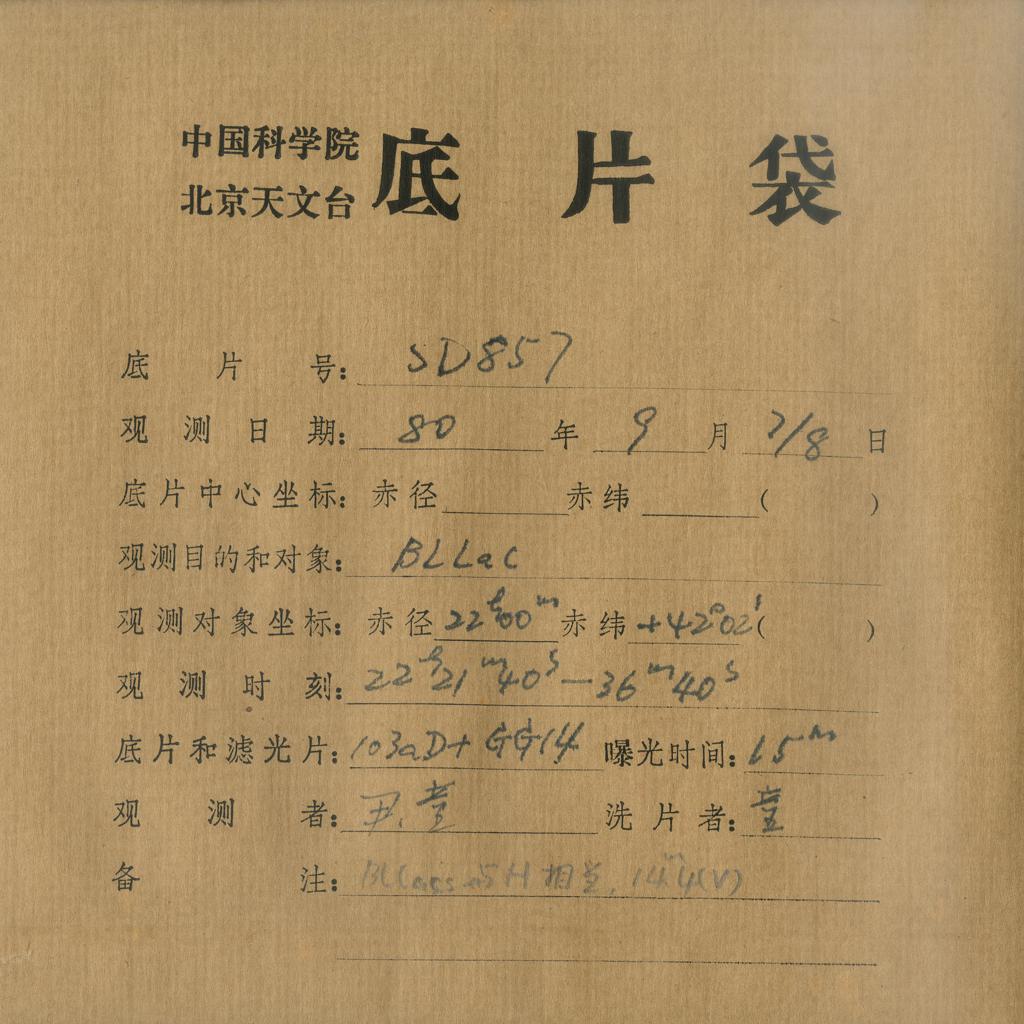 中国科学院
北京天文台
底片袋
底片号: SD857
观测日期: 80 年 9 月 7/8 日
底片中心坐标: 赤径 赤纬 ( )
观测目的和对象: BLLac
观测对象坐标: 赤径 22h00m 赤纬 +42°02' ( )
观测时刻: 22h21m40s—36m40s
底片和滤光片: 103aD+GG14 曝光时间: 15m
观测者: 尹, 洗片者:
备注: 与H相当, 14m4(V)